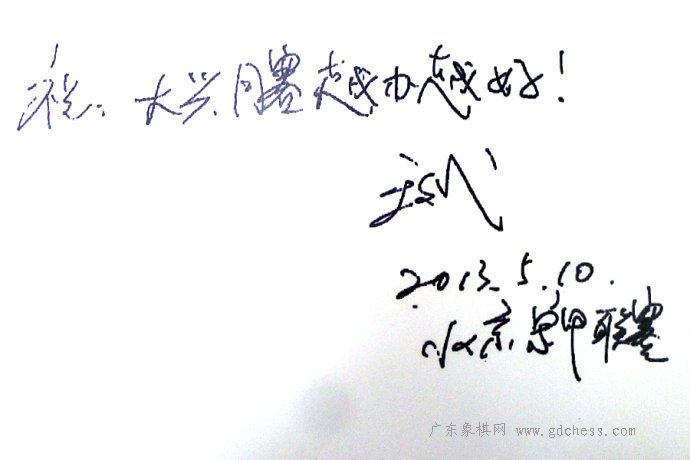 祝：大兴月赛越办越好！
2013.5.10.
北京象甲联赛
广东象棋网 www.gdchess.com